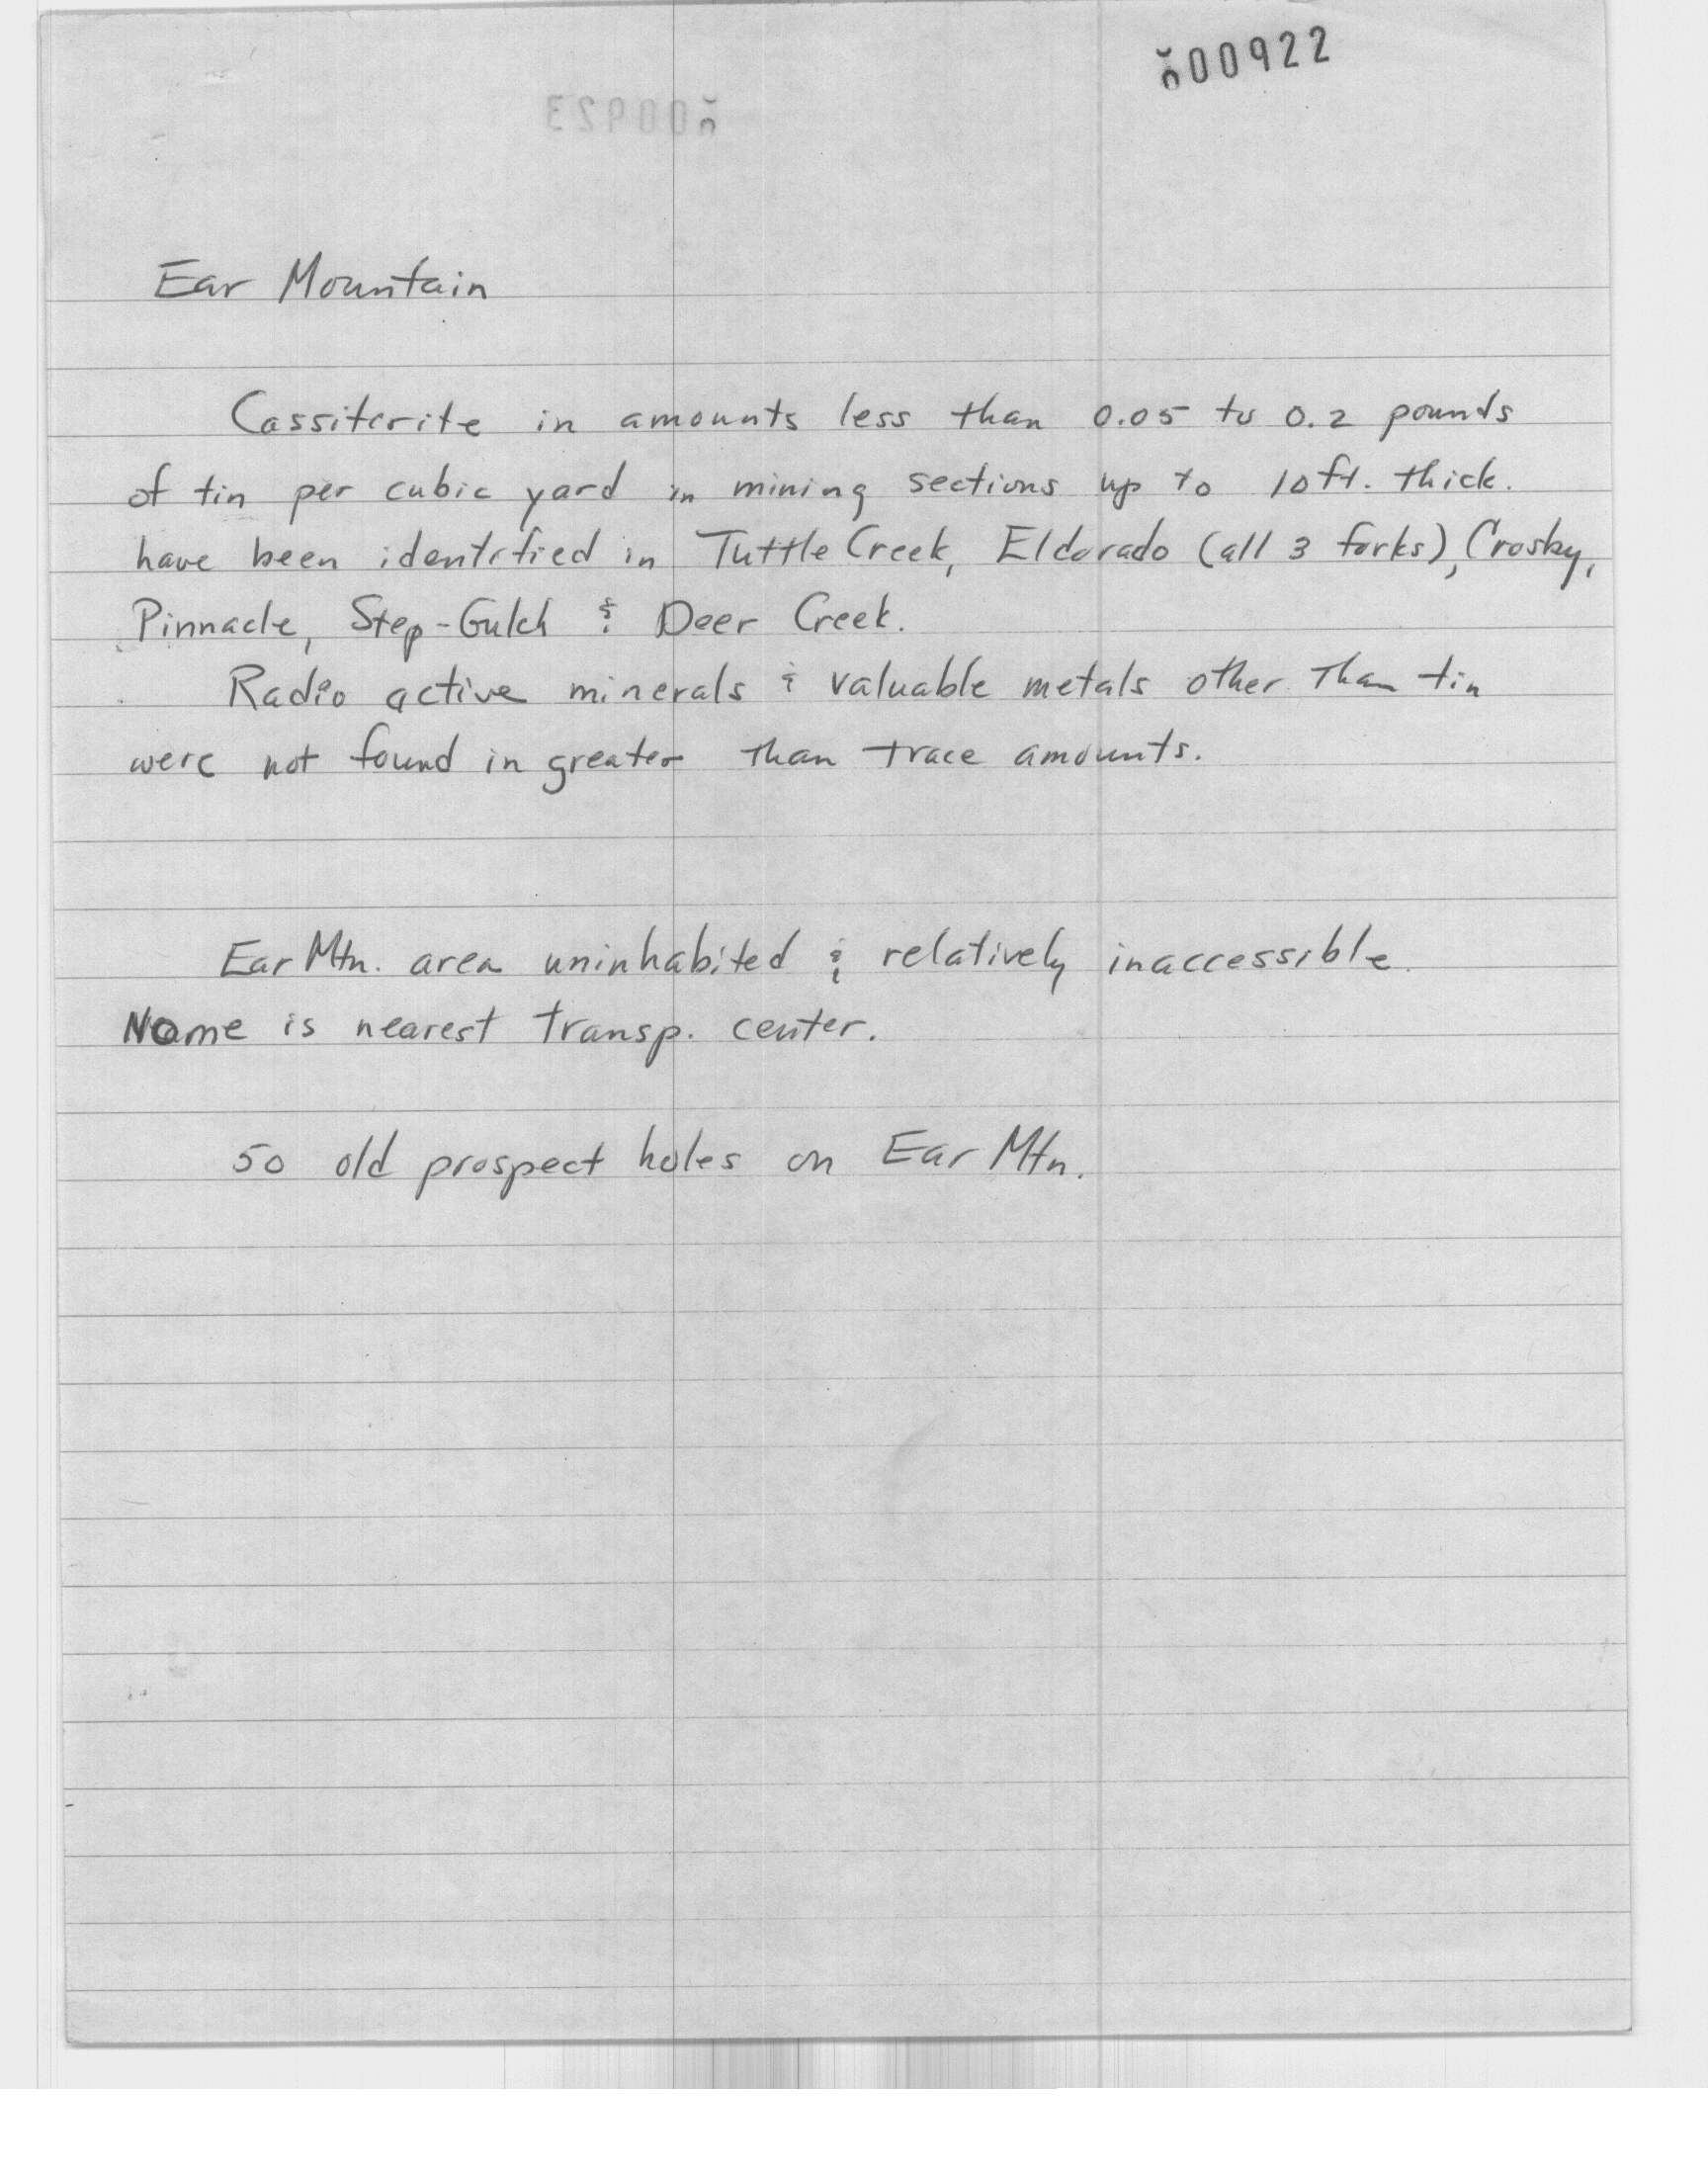 000922
Ear Mountain
Cassiterite in amounts less than 0.05 to 0.2 pounds
of tin per cubic yard in mining sections up to 10 ft. thick.
have been identified in Tuttle Creek, Eldorado (all 3 forks), Crosby,
Pinnacle, Step-Gulch & Deer Creek.
Radio active minerals & valuable metals other than tin
were not found in greater than trace amounts.
Ear Mtn. area uninhabited & relatively inaccessible.
Nome is nearest transp. center.
50 old prospect holes on Ear Mtn.